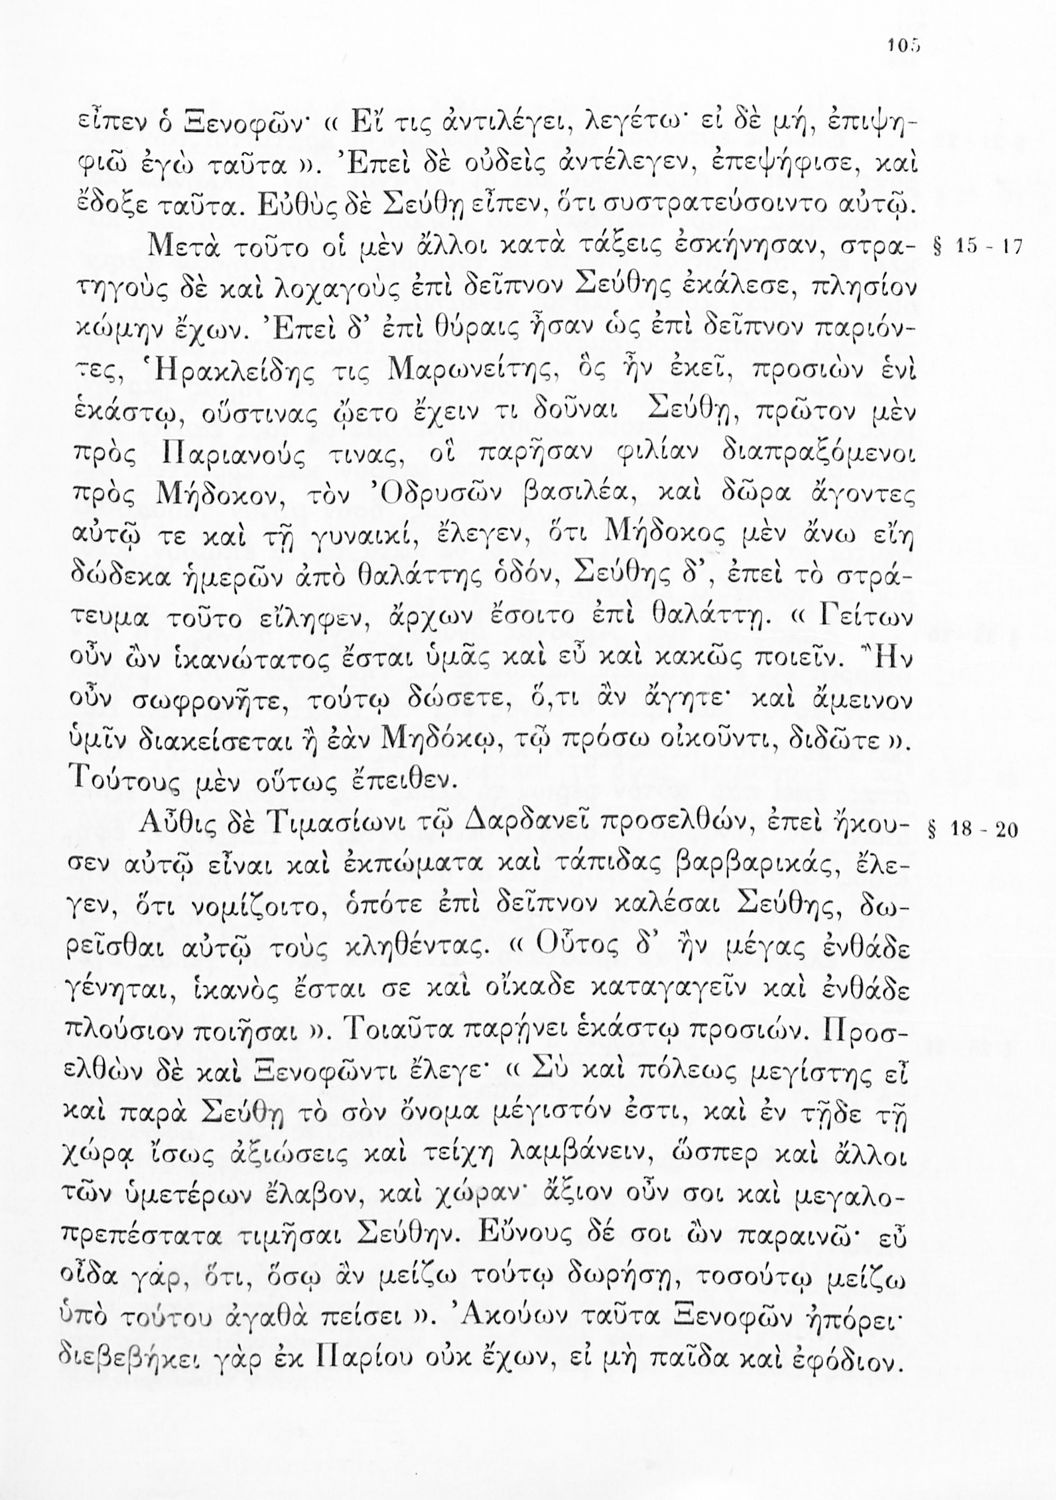 105
εἶπεν ὁ Ξενοφῶν· « Εἴ τις ἀντιλέγει, λεγέτω· εἰ δὲ μή, ἐπιψη-
φιῶ ἐγὼ ταῦτα ». Ἐπεὶ δὲ οὐδεὶς ἀντέλεγεν, ἐπεψήφισε, καὶ
ἔδοξε ταῦτα. Εὐθὺς δὲ Σεύθῃ εἶπεν, ὅτι συστρατεύσοιντο αὐτῷ.
Μετὰ τοῦτο οἱ μὲν ἄλλοι κατὰ τάξεις ἐσκήνησαν, στρα- § 15 - 17
τηγοὺς δὲ καὶ λοχαγοὺς ἐπὶ δεῖπνον Σεύθης ἐκάλεσε, πλησίον
κώμην ἔχων. Ἐπεὶ δ’ ἐπὶ θύραις ἦσαν ὡς ἐπὶ δεῖπνον παριόν-
τες, Ἡρακλείδης τις Μαρωνείτης, ὃς ἦν ἐκεῖ, προσιὼν ἑνὶ
ἑκάστῳ, οὕστινας ᾤετο ἔχειν τι δοῦναι Σεύθῃ, πρῶτον μὲν
πρὸς Παριανούς τινας, οἳ παρῆσαν φιλίαν διαπραξόμενοι
πρὸς Μήδοκον, τὸν Ὀδρυσῶν βασιλέα, καὶ δῶρα ἄγοντες
αὐτῷ τε καὶ τῇ γυναικί, ἔλεγεν, ὅτι Μήδοκος μὲν ἄνω εἴη
δώδεκα ἡμερῶν ἀπὸ θαλάττης ὁδόν, Σεύθης δ’, ἐπεὶ τὸ στρά-
τευμα τοῦτο εἴληφεν, ἄρχων ἔσοιτο ἐπὶ θαλάττῃ. « Γείτων
οὖν ὢν ἱκανώτατος ἔσται ὑμᾶς καὶ εὖ καὶ κακῶς ποιεῖν. Ἢν
οὖν σωφρονῆτε, τούτῳ δώσετε, ὅ,τι ἂν ἄγητε· καὶ ἄμεινον
ὑμῖν διακείσεται ἢ ἐὰν Μηδόκῳ, τῷ πρόσω οἰκοῦντι, διδῶτε ».
Τούτους μὲν οὕτως ἔπειθεν.
Αὖθις δὲ Τιμασίωνι τῷ Δαρδανεῖ προσελθών, ἐπεὶ ἤκου- § 18 - 20
σεν αὐτῷ εἶναι καὶ ἐκπώματα καὶ τάπιδας βαρβαρικάς, ἔλε-
γεν, ὅτι νομίζοιτο, ὁπότε ἐπὶ δεῖπνον καλέσαι Σεύθης, δω-
ρεῖσθαι αὐτῷ τοὺς κληθέντας. « Οὗτος δ’ ἢν μέγας ἐνθάδε
γένηται, ἱκανὸς ἔσται σε καὶ οἴκαδε καταγαγεῖν καὶ ἐνθάδε
πλούσιον ποιῆσαι ». Τοιαῦτα παρῄνει ἑκάστῳ προσιών. Προσ-
ελθὼν δὲ καὶ Ξενοφῶντι ἔλεγε· « Σὺ καὶ πόλεως μεγίστης εἶ
καὶ παρὰ Σεύθῃ τὸ σὸν ὄνομα μέγιστόν ἐστι, καὶ ἐν τῇδε τῇ
χώρᾳ ἴσως ἀξιώσεις καὶ τείχη λαμβάνειν, ὥσπερ καὶ ἄλλοι
τῶν ὑμετέρων ἔλαβον, καὶ χώραν· ἄξιον οὖν σοι καὶ μεγαλο-
πρεπέστατα τιμῆσαι Σεύθην. Εὔνους δέ σοι ὢν παραινῶ· εὖ
οἶδα γάρ, ὅτι, ὅσῳ ἂν μείζω τούτῳ δωρήσῃ, τοσούτῳ μείζω
ὑπὸ τούτου ἀγαθὰ πείσει ». Ἀκούων ταῦτα Ξενοφῶν ἠπόρει·
διεβεβήκει γὰρ ἐκ Παρίου οὐκ ἔχων, εἰ μὴ παῖδα καὶ ἐφόδιον.